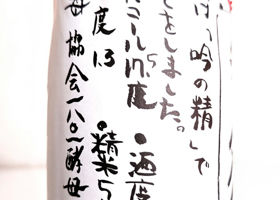 は、吟の精」で
をしました。
コール 度 ・酒度
度1.3 ・精米5
母 協会一八〇一酵母